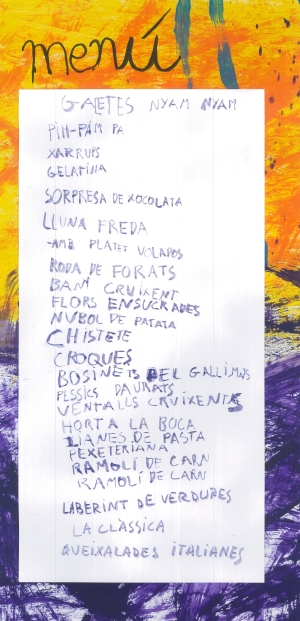 menú
GALETES NYAM NYAM
PIH-PAM PA
XARRUPS
GELATINA
SORPRESA DE XOCOLATA
LLUNA FREDA
-AMB PLATET VOLADOS
RODA DE FORATS
BANY CRUIXENT
FLORS ENSUCRADES
NUBOL DE PATATA
CHISTETE
CROQUES
BOSINETS DEL GALLIMOS
PESSICS DAURATS
VENTALLS CRUIXENTS
HORT A LA BOCA
LIANES DE PASTA
PEXETERIANA
RAMOLÍ DE CARN
RAMOLÍ DE CARN
LABERINT DE VERDURES
LA CLÀSSICA
QUEIXALADES ITALIANES